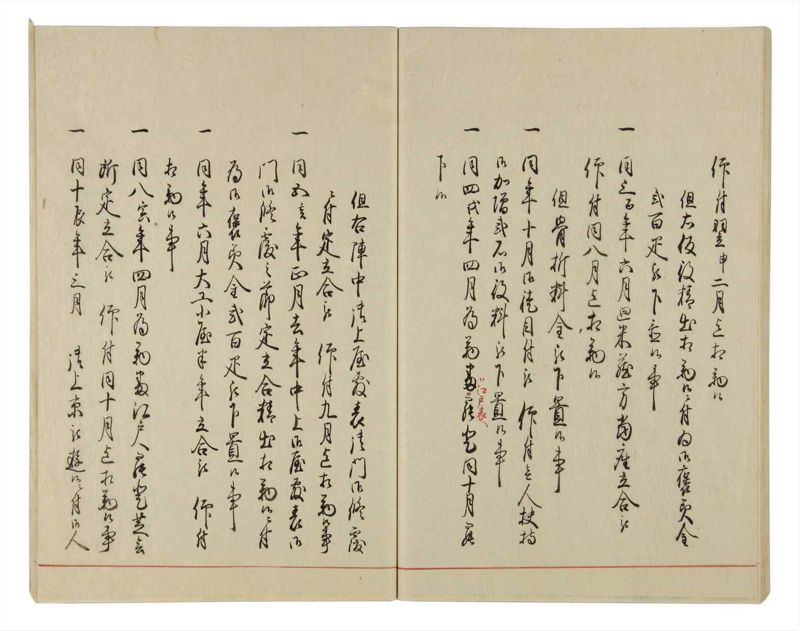 仰付翌申二月迄相勤候
但右役精出相勤候ニ付為御褒美金
弐百疋被下置候事
一 同三酉年六月廻米蔵方当座立合被
仰付同八月迄相勤候
但骨折料金被下置候事
一 同年十月御徒目付被 仰付三人扶持
御加増弐石御役料被下置候事
一 同四戌年四月為勤番罷登同十月罷
御江戸表へ
下候
但右陣中 御上屋敷表御門御修覆
ニ付定立合被 仰付九月迄相勤候事
一 同五亥年正月去年中上御屋敷表御
門御修覆之節定立合精出相勤候ニ付
為御褒美金弐百疋被下置候事
一 同年六月大工小屋半年立合被 仰付
相勤候事
一 同八寅年四月為勤番江戸へ罷登芝会
所定立合被 仰付同十月迄相勤候事
一 同十辰年三月 御上京被遊候ニ付御人